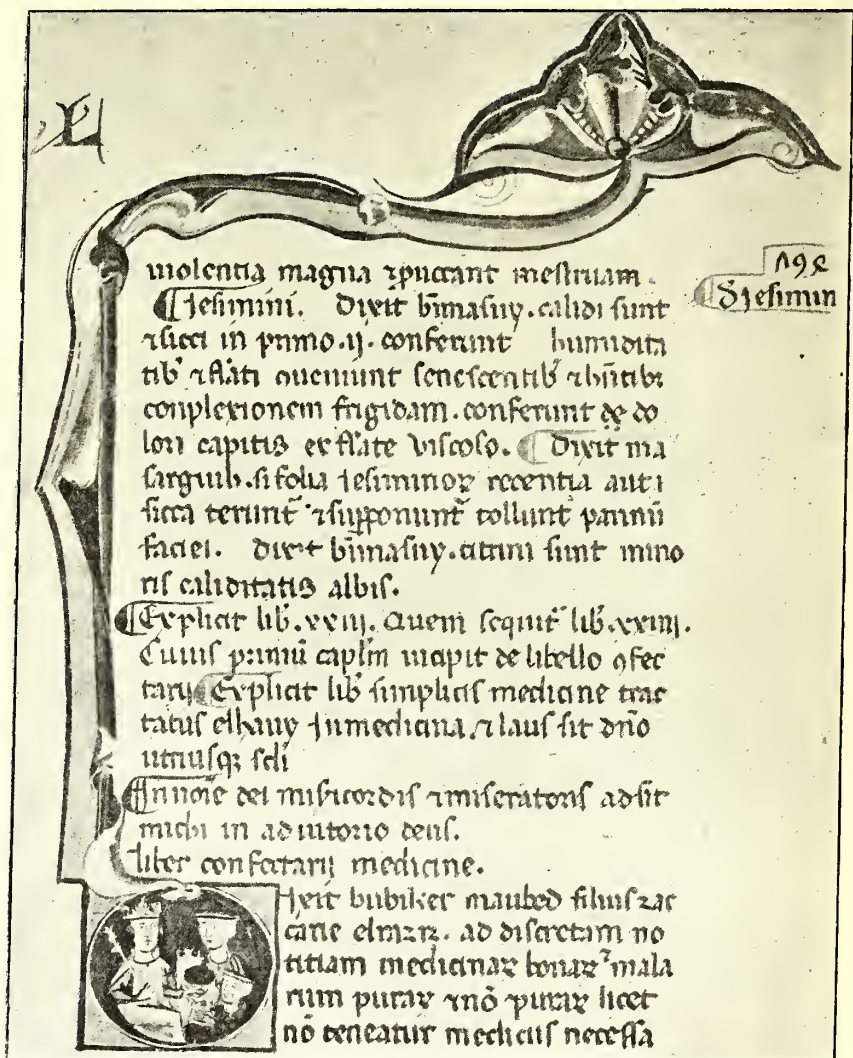 uiolentia magna ⁊puocant mestruam.
¶Jesimini. Dixit bīmasuy. calidi sunt
⁊sicci in primo .ij. conferunt humidita
tibꝰ ⁊flāti ꝯueniunt senescentibꝰ ⁊hn̄tibꝫ
conplexionem frigidam. conferunt do
lori capitis ex flāte viscoso. ¶Dixit ma
sarguib. si folia jesiminoꝝ recentia aut
sicca terunt᷑ ⁊suꝑponunt᷑ tollunt pannū
faciei. Dixit bīmasuy. citrini sunt mino
ris caliditatis albis.
¶Explicit lib̄. xxiij. Quem sequit᷑ lib̄. xxiiij.
Cuius p̄imū capl̄m incipit de libello ꝯfec
tarij ¶Explicit lib̄ simplicis medicine trac
tatus elhauy In medicina. ⁊ laus sit dn̄o
utriusqꝫ scl̄i
¶In noīe dei misericordis ⁊miseratoris adsit
michi in adiutorio deus.
liber confectarij medicine.
Dixit bubiker filius zac
carie ad discretam no
titiam medicinaꝝ bonaꝝ ⁊mala
rum puraꝝ ⁊nō puraꝝ licet
nō teneatur medicus necessa
¶De Jesimin